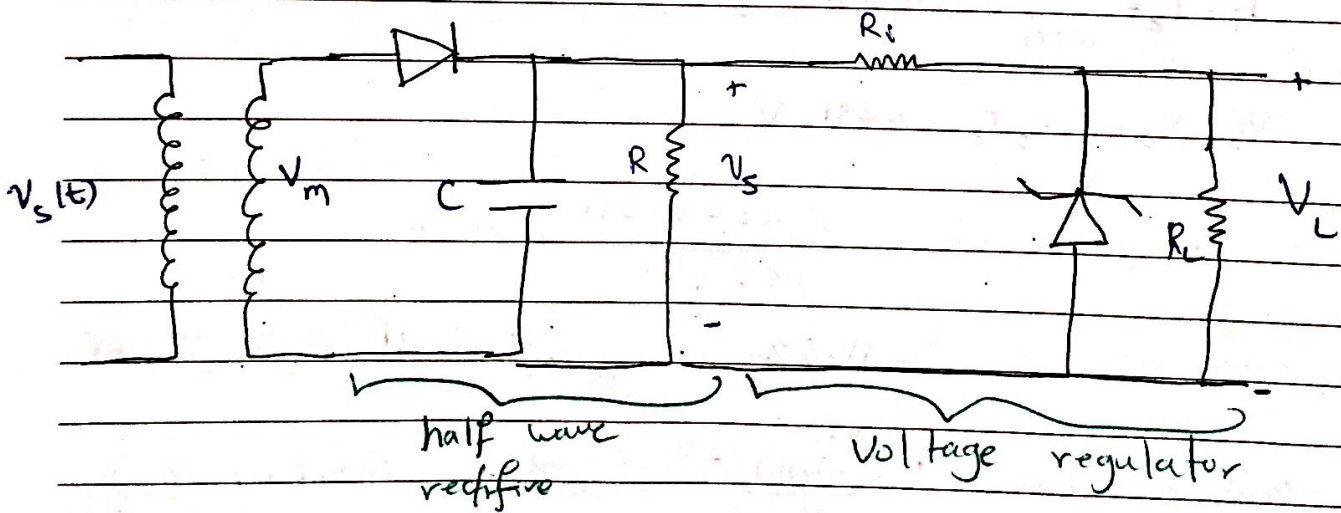 Ri
+
+
R
v_s
v_s(t)
V_m
C
R_L
V_L
-
-
half wave
rectifire
voltage regulator